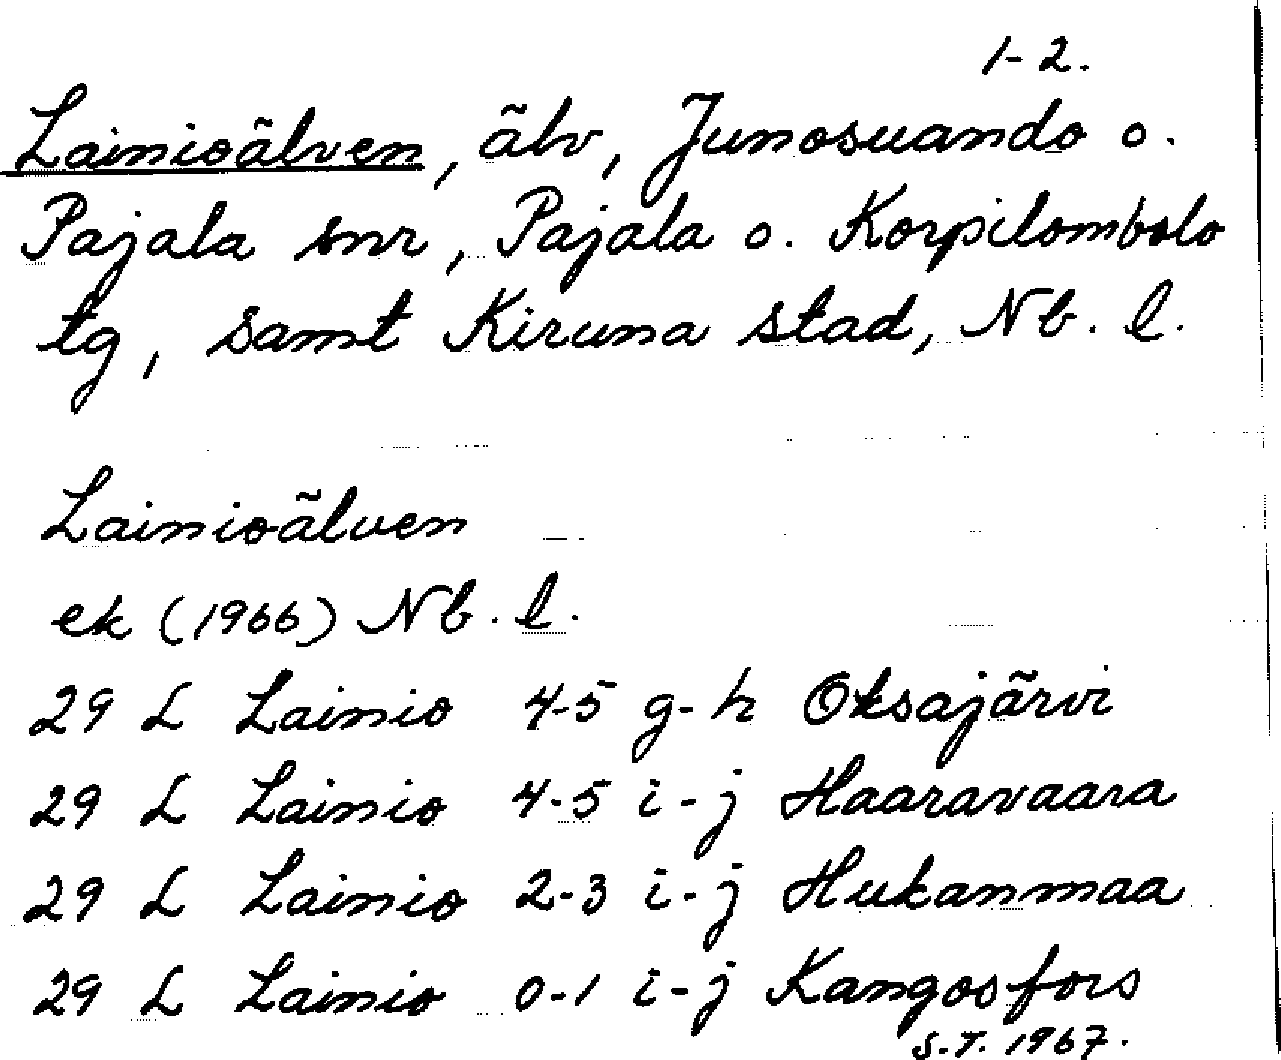 1-2.
Lainioälven, älv, Junosuando o.
Pajala snr, Pajala o. Korpilombolo
tg, samt Kiruna stad, Nb. l.
Lainioälven
ek (1966) Nb. l.
29 L Lainio 4-5 g-h Oksajärvi
29 L Lainio 4-5 i-j Haaravaara
29 L Lainio 2-3 i-j Hukanmaa
29 L Lainio 0-1 i-j Kangosfors
S.T. 1967.